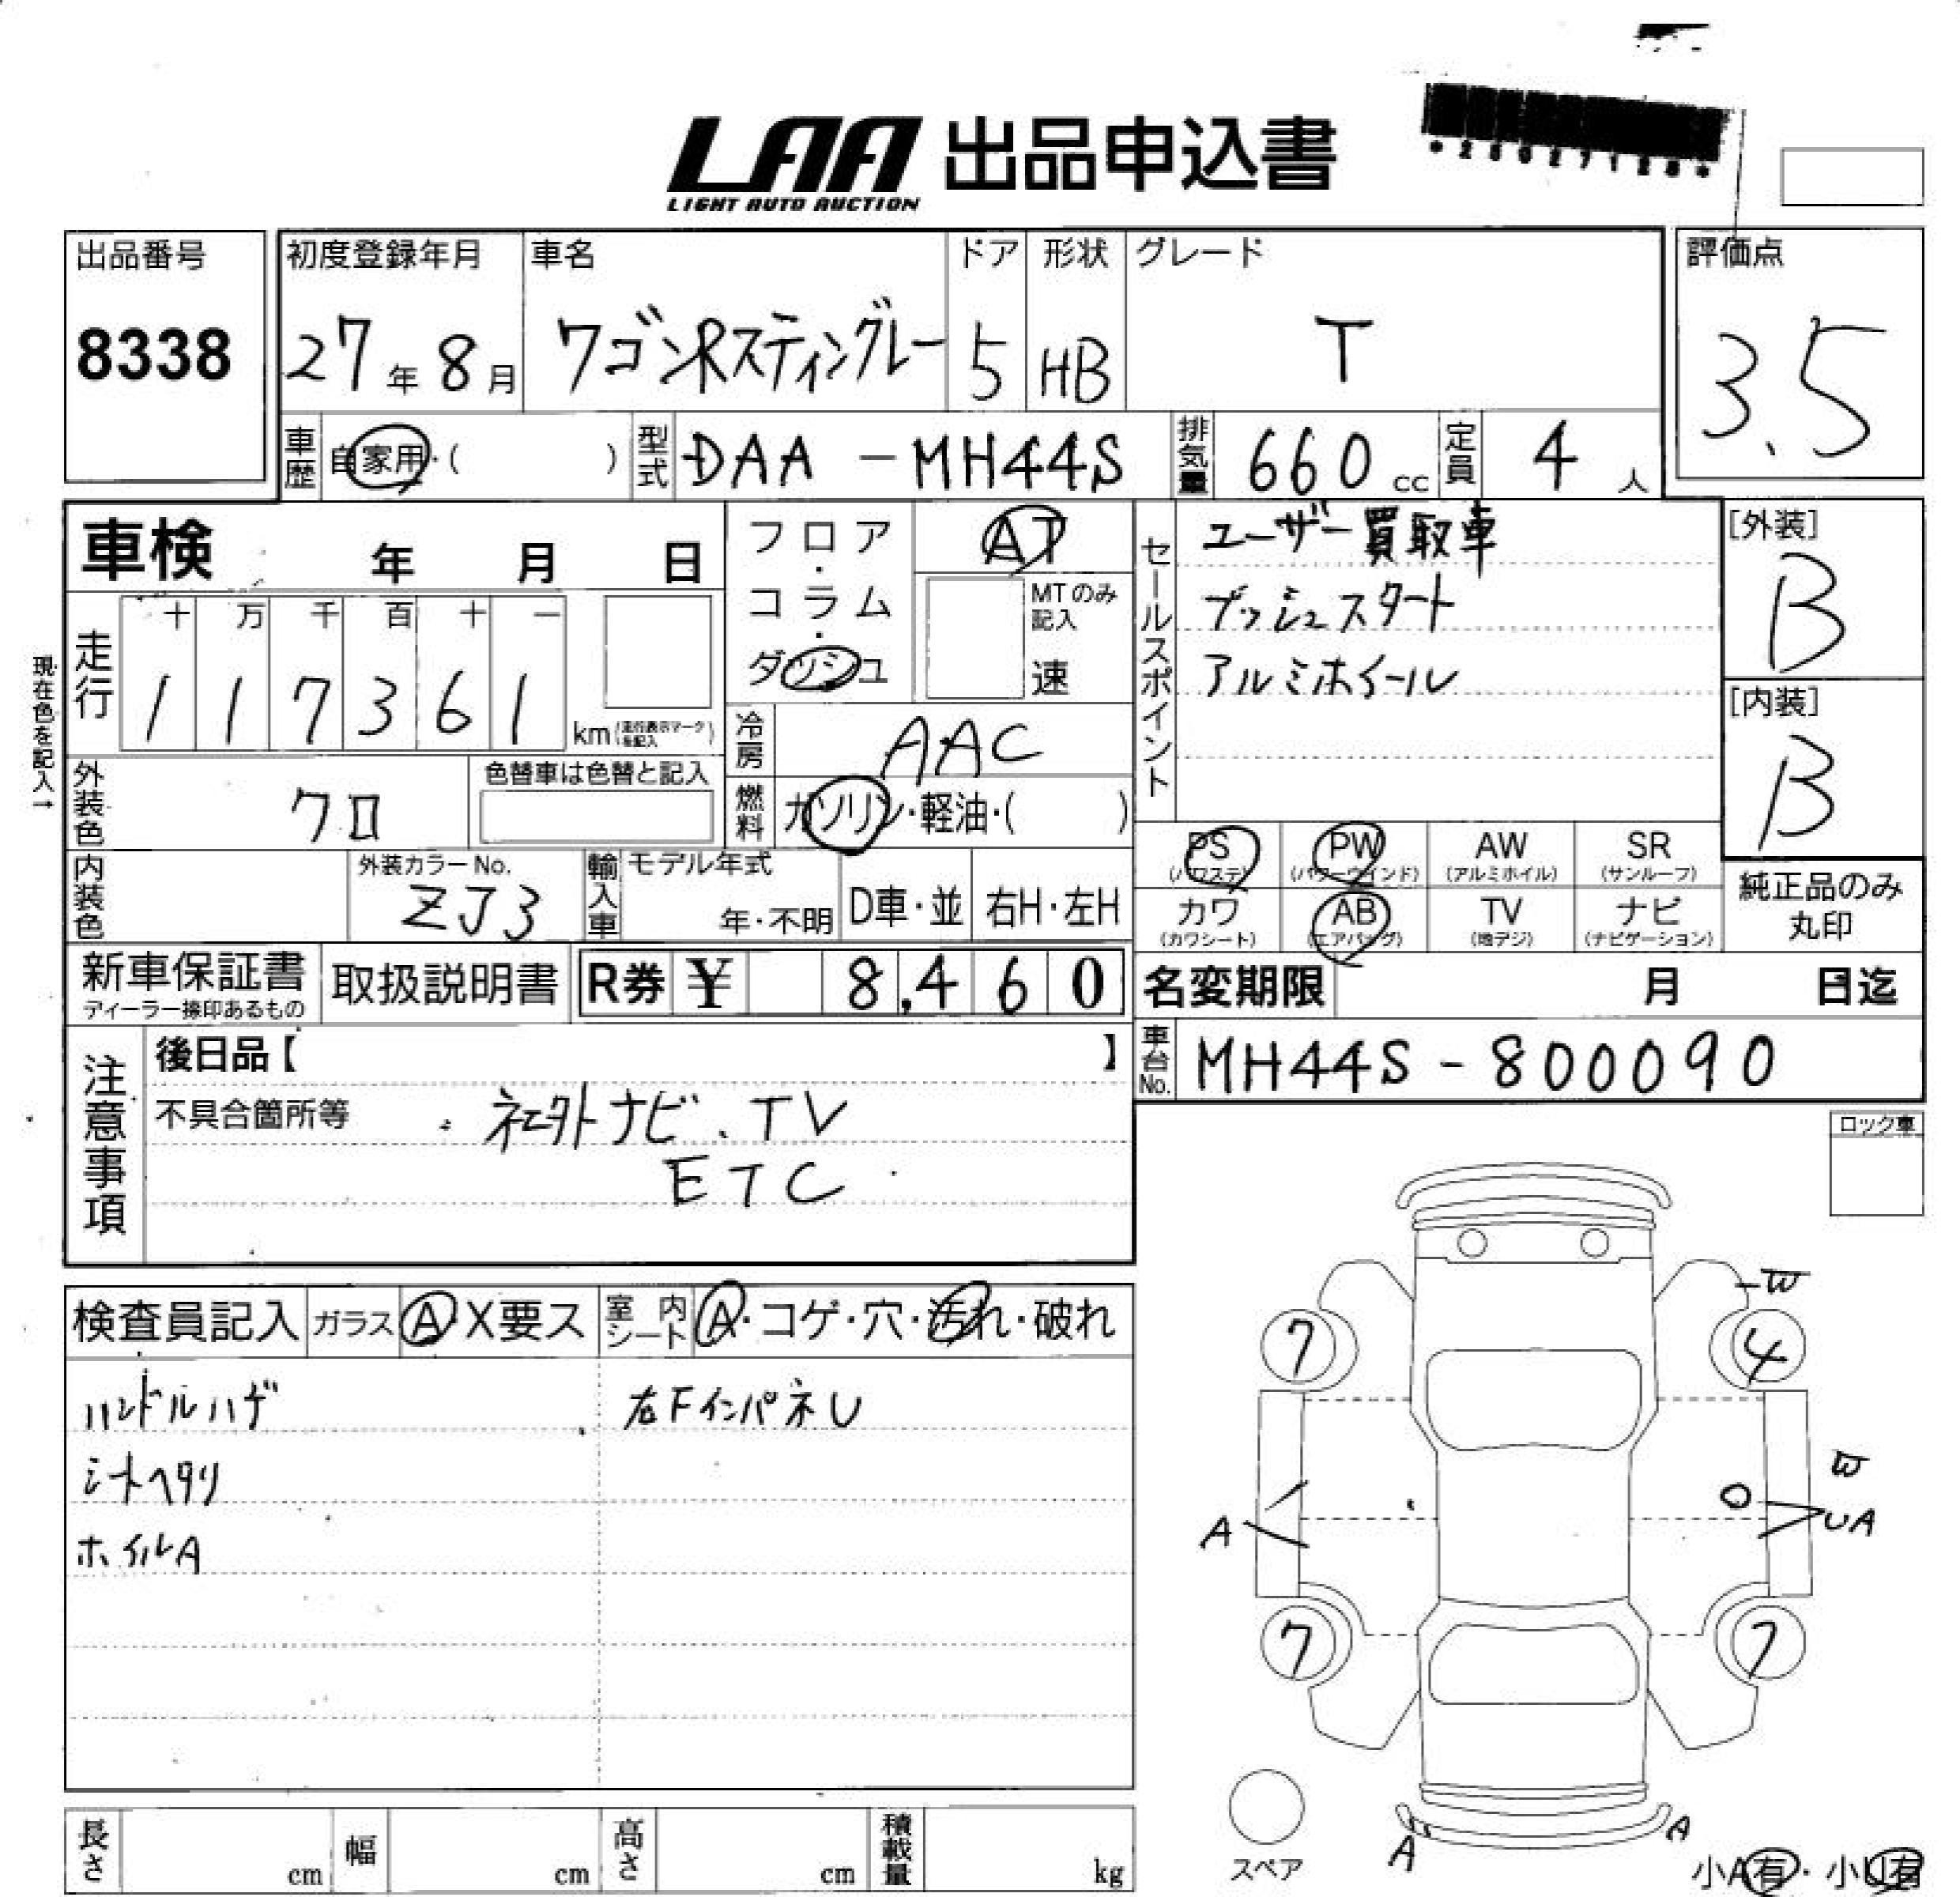 LAA 出品申込書
LIGHT AUTO AUCTION
*25027128*
出品番号
8338
初度登録年月
27年8月
車名
ワゴンRスティングレー
ドア
5
形状
HB
グレード
T
評価点
3.5
車歴 自家用・( )
型式 DAA-MH44S
排気量 660cc
定員 4人
車検 年 月 日
走行 十 万 千 百 十 一
117361 km(走行表示マークを記入)
現在色を記入→
フロア・コラム・ダッシュ
AT
MTのみ記入
速
冷房 AAC
外装色 クロ
色替車は色替と記入
燃料 ガソリン・軽油・( )
内装色
外装カラーNo.
ZJ3
輸入車 モデル年式
年・不明 D車・並 右H・左H
セールスポイント
ユーザー買取車
プッシュスタート
アルミホイール
[外装]
B
[内装]
B
PS (パワステ) PW (パワーウインド) AW (アルミホイル) SR (サンルーフ)
カワ (カワシート) AB (エアバッグ) TV (地デジ) ナビ (ナビゲーション)
純正品のみ丸印
新車保証書
ディーラー捺印あるもの
取扱説明書
R券 ¥ 8,460
名変期限 月 日迄
車台No. MH44S-800090
注意事項
後日品【 】
不具合箇所等 ・社外ナビ、TV
ETC
ロック車
検査員記入 ガラス A X要ス 室内シート A・コゲ・穴・汚れ・破れ
ハンドルハゲ 右FインパネU
シートヘタリ
ホイルA
7 4
W
W
A UA
7 7
A A
スペア
小A有・小U有
長さ cm 幅 cm 高さ cm 積載量 kg